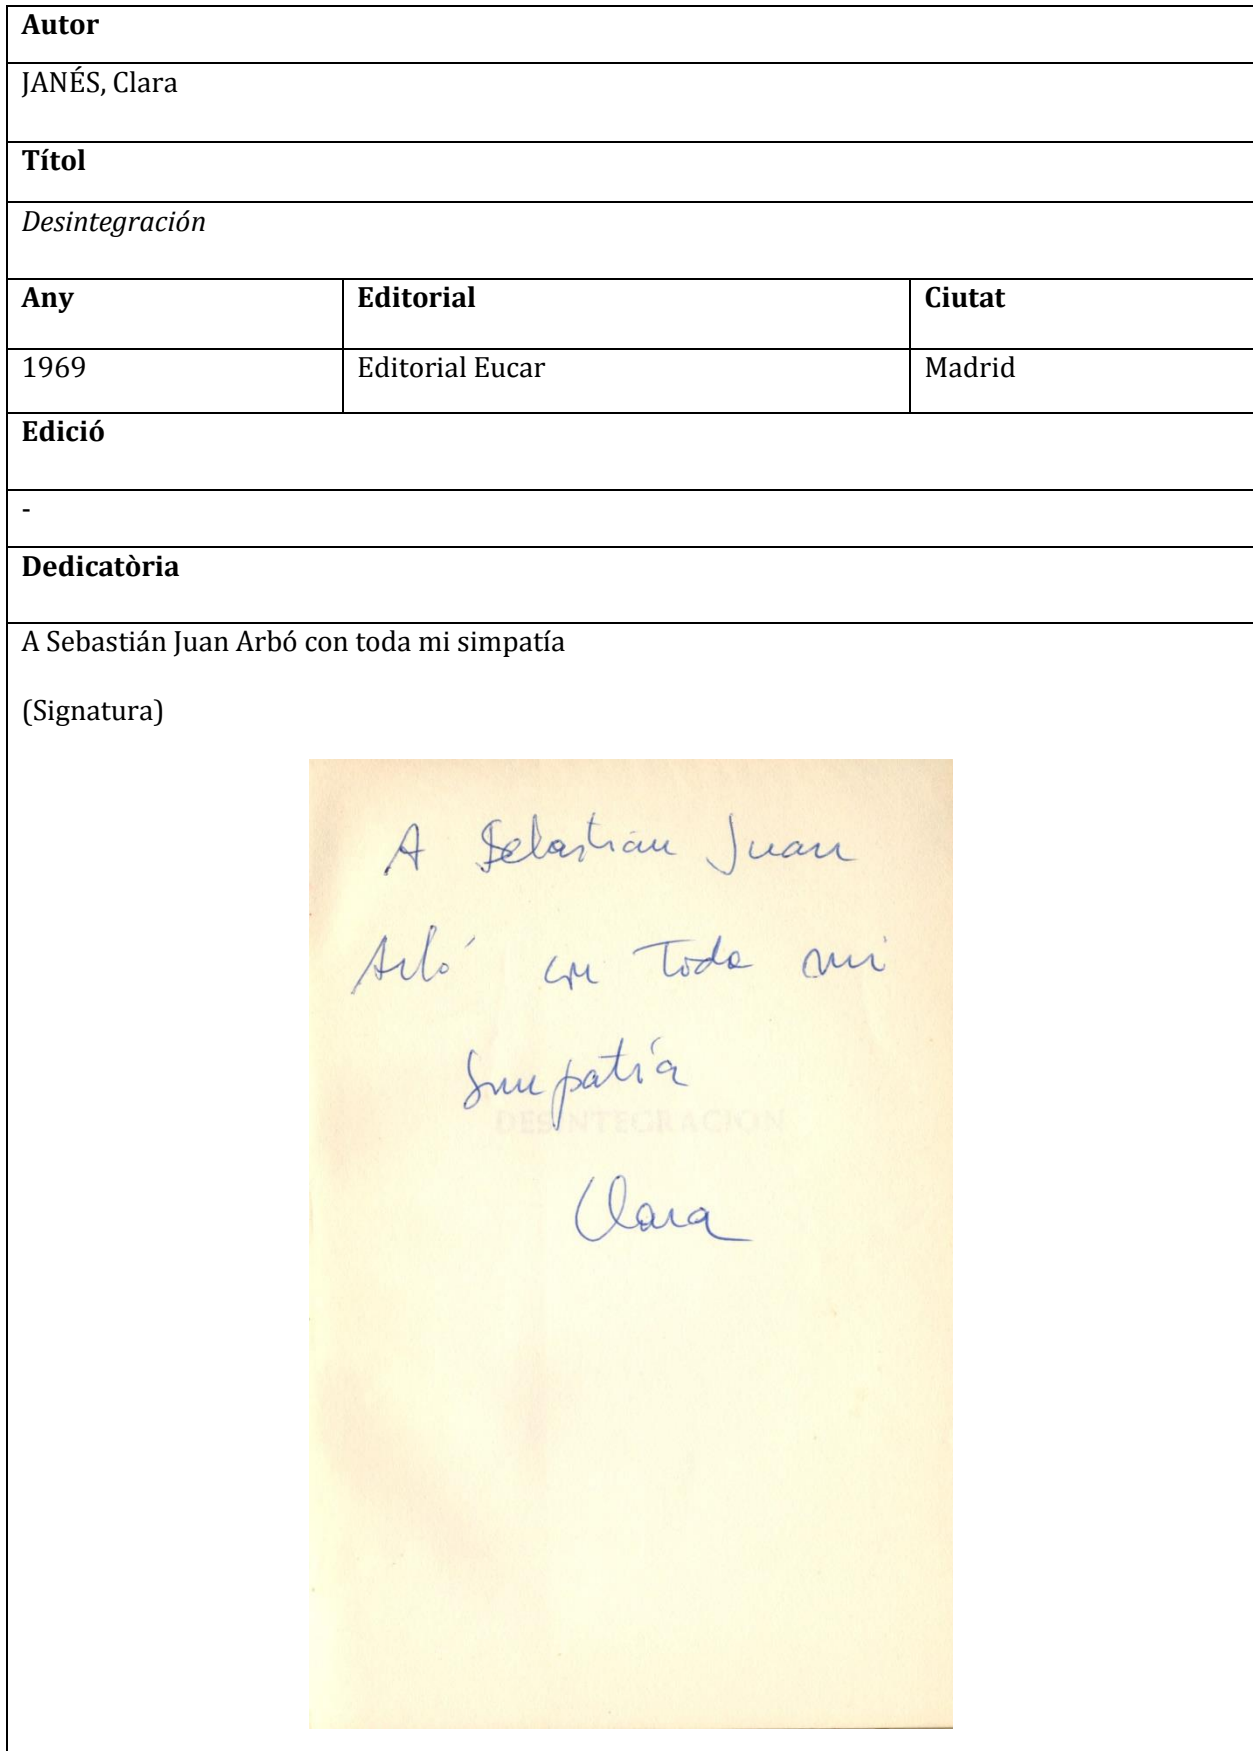 Autor
JANÉS, Clara
Títol
Desintegración
Any Editorial Ciutat
1969 Editorial Eucar Madrid
Edició
-
Dedicatòria
A Sebastián Juan Arbó con toda mi simpatía
(Signatura)
A Sebastián Juan
Arbó con toda mi
simpatía
DESINTEGRACION
Clara